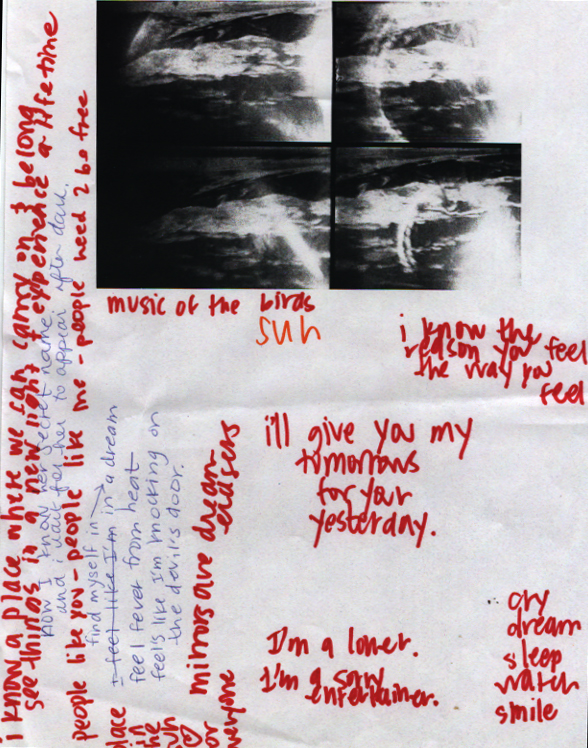 i know a place where we can carry on I belong
see things in a new light & experience a lifetime
now I know her secret name.
and i wait for her to appear after dark.
people like you - people like me - people need 2 be free
find myself in
I feel like I'm in a dream
feel fever from heat
feels like I'm knocking on
the devil's door.
mirrors are dream-
erasers
place
in
the
sun
or
everyone
music of the birds
sun
i know the
reason you feel
the way you
feel
i'll give you my
tomorrows
for your
yesterday.
I'm a loner.
I'm a sorry
entertainer.
cry
dream
sleep
watch
smile